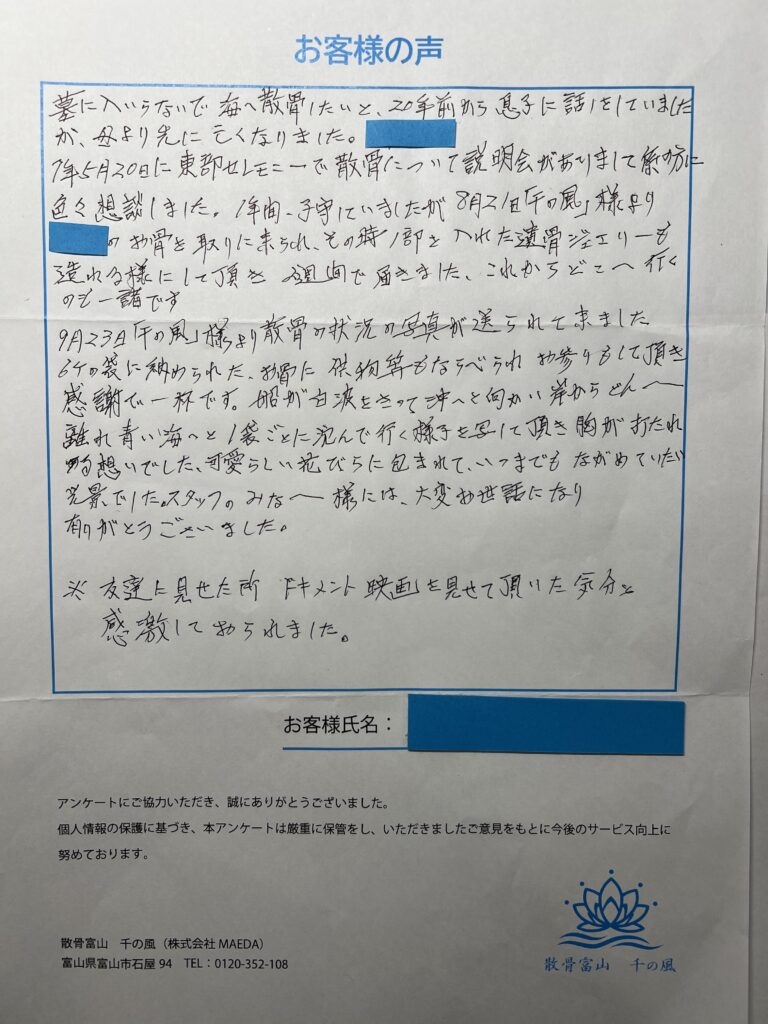 お客様の声
墓に入いらないで 海へ散骨したいと、20年前から息子に話しをしていました
が、母より先に亡くなりました。
7年5月20日に東部セレモニーで散骨について説明会がありまして係の方に
色々想談しました。1年間、子守していましたが 8月21日「千の風」様より
のお骨を取りに来られ、その時1部を入れた遺骨ジュエリーも
造れる様にして頂き 2週間で届きました、これからどこへ行く
のも一諸です
9月23日「千の風」様より散骨の状況の写真が送られて来ました
6ケの袋に納められた、お骨に 供物等もならべられ お参りもして頂き
感謝で一杯です。船が白波をきって沖へと向かい岸からどん〱
離れ青い海へと1袋ごとに沈んで行く様子を写して頂き胸が打たれ
る想いでした、可愛らしい花びらに包まれて、いつまでもながめていたい
光景でした。スタッフのみな〱様には、大変お世話になり
有りがとうございました。
※ 友達に見せた所 ドキメント映画を見せて頂いた気分と
感激しておられました。
お客様氏名：
アンケートにご協力いただき、誠にありがとうございました。
個人情報の保護に基づき、本アンケートは厳重に保管をし、いただきましたご意見をもとに今後のサービス向上に
努めております。
散骨富山 千の風（株式会社 MAEDA）
富山県富山市石屋 94 TEL：0120-352-108
散骨富山 千の風